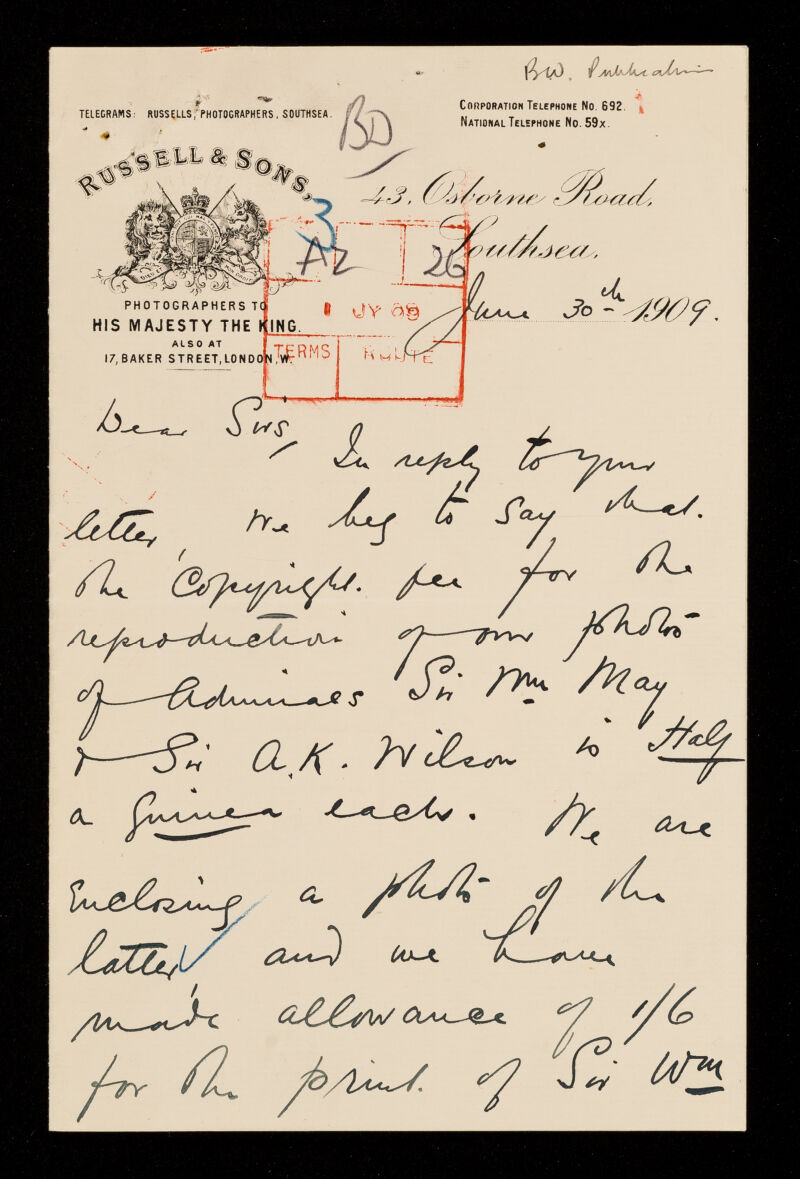 BW. Publication
TELEGRAMS: RUSSELLS, PHOTOGRAPHERS, SOUTHSEA.
CORPORATION TELEPHONE NO. 692.
NATIONAL TELEPHONE NO. 59x.
BD
RUSSELL & SONS,
PHOTOGRAPHERS TO
HIS MAJESTY THE KING.
ALSO AT
17, BAKER STREET, LONDON, W.
43, Osborne Road,
Southsea,
June 30th 1909.
3
AZ 26
1 JY 09
TERMS ROUTE
Dear Sirs,
In reply to your
letter, we beg to say that
the Copyright fee for the
reproduction of our photos
of Admirals Sir Wm May
& Sir A.K. Wilson is Half
a Guinea each. We are
enclosing a photo of the
latter, and we have
made allowance of 1/6
for the print of Sir Wm